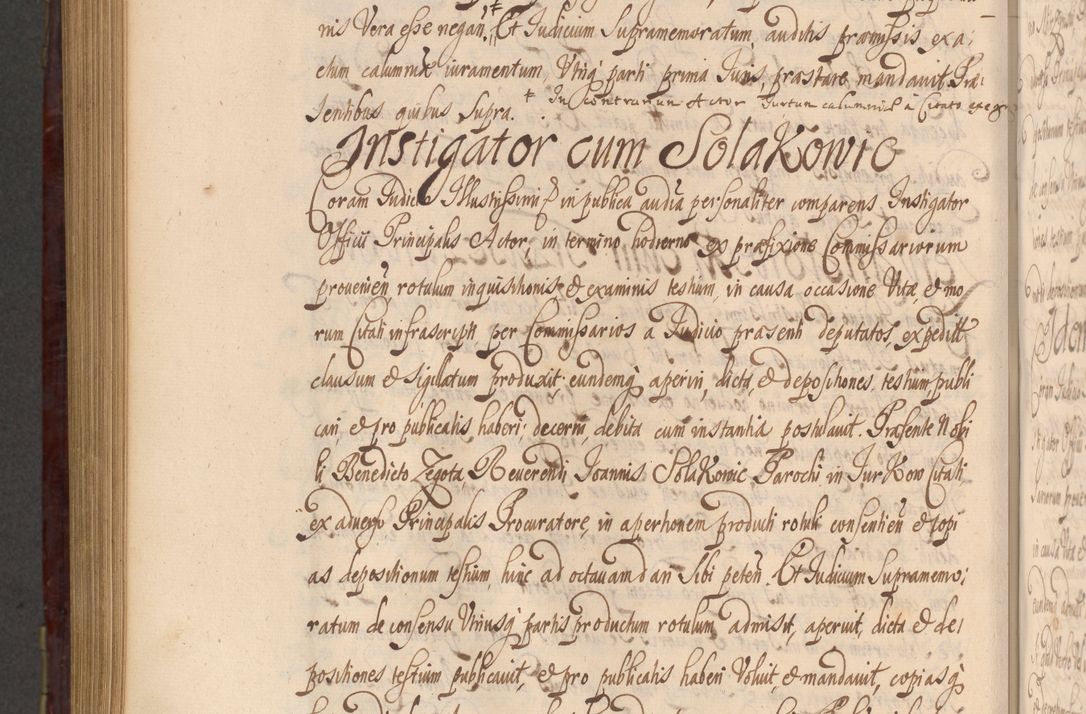 nis Vera esse negan. ‡ Et Judicium Supramemoratum, auditis præmissis exa:
ctum calumniæ iuramentum, Utriq parti prima Juris, præstare mandavit. Præ:
sentibus quibus supra. ‡ In Contrarium Actor Juxtum calumniæ a Citato exegi
Instigator cum Solakowic
Coram Judicio Illustrissimi in publica audia personaliter comparens Instigator
Officii Principalis Actor, in termino hodierno ex præfixione Commissariorum
provenien rotulum inquisitionis & examinis testium, in causa occasione Vitæ, & mo
rum Citati infrascripti, per Commissarios a Judicio præsenti deputatos, expeditt
clausum & sigillatum produxit eundemq aperiri, dicta, & depositiones testium publi
cari, & pro publicatis haberi, decerni, debita cum instantia postulavit. Præsente Nobi
li Benedicto Zegota, Reverendi Joannis Solakowic Parochi in Jurkow Citati
ex adverso Principalis Procuratore, in apertionem producti rotuli consentien & copi
as depositionum testium hinc ad octavam dari sibi peten. Et Judicium Supramemo:
ratum de consensu Utriusq partis productum rotulum admisit, aperuit, dicta & de:
positiones testium publicavit, & pro publicatis haberi Voluit, & mandavit, copiasq